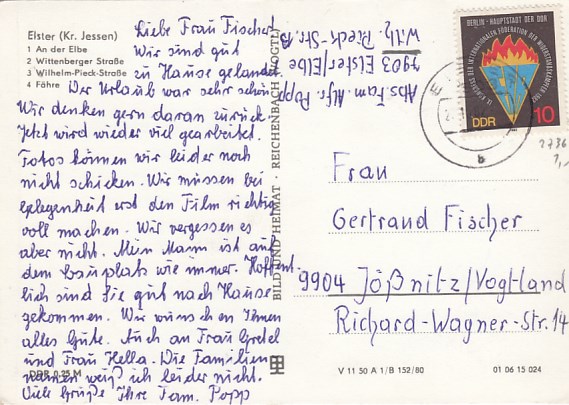 Elster (Kr. Jessen)
1 An der Elbe
2 Wittenberger Straße
3 Wilhelm-Pieck-Straße
4 Fähre
Liebe Frau Fischer!
Wir sind gut
zu Hause gelandet.
Der Urlaub war sehr schön.
Wir denken gern daran zurück.
Jetzt wird wieder viel gearbeitet.
Fotos können wir leider noch
nicht schicken. Wir müssen bei
Gelegenheit erst den Film richtig
voll machen. Wir vergessen es
aber nicht. Mein Mann ist auf
dem Bauplatz wie immer. Hoffent-
lich sind Sie gut nach Hause
gekommen. Wir wünschen Ihnen
alles Gute. Auch an Frau Gretel
und Frau Hella. Die Familien
namen weiß ich leider nicht.
Viele Grüße Ihre Fam. Popp
DDR 0,25 M
BILD UND HEIMAT · REICHENBACH (VOGTL)
Abs. Fam. Alfr. Popp
7903 Elster/Elbe
Wilh. Pieck-Str.
BERLIN - HAUPTSTADT DER DDR
IX. KONGRESS DER INTERNATIONALEN FÖDERATION DER WIDERSTANDSKÄMPFER 1982
DDR 10
b
2736
1,-
Frau
Gertraud Fischer
9904 Jößnitz/Vogtland
Richard-Wagner-Str. 14
V 11 50 A 1/B 152/80
01 06 15 024